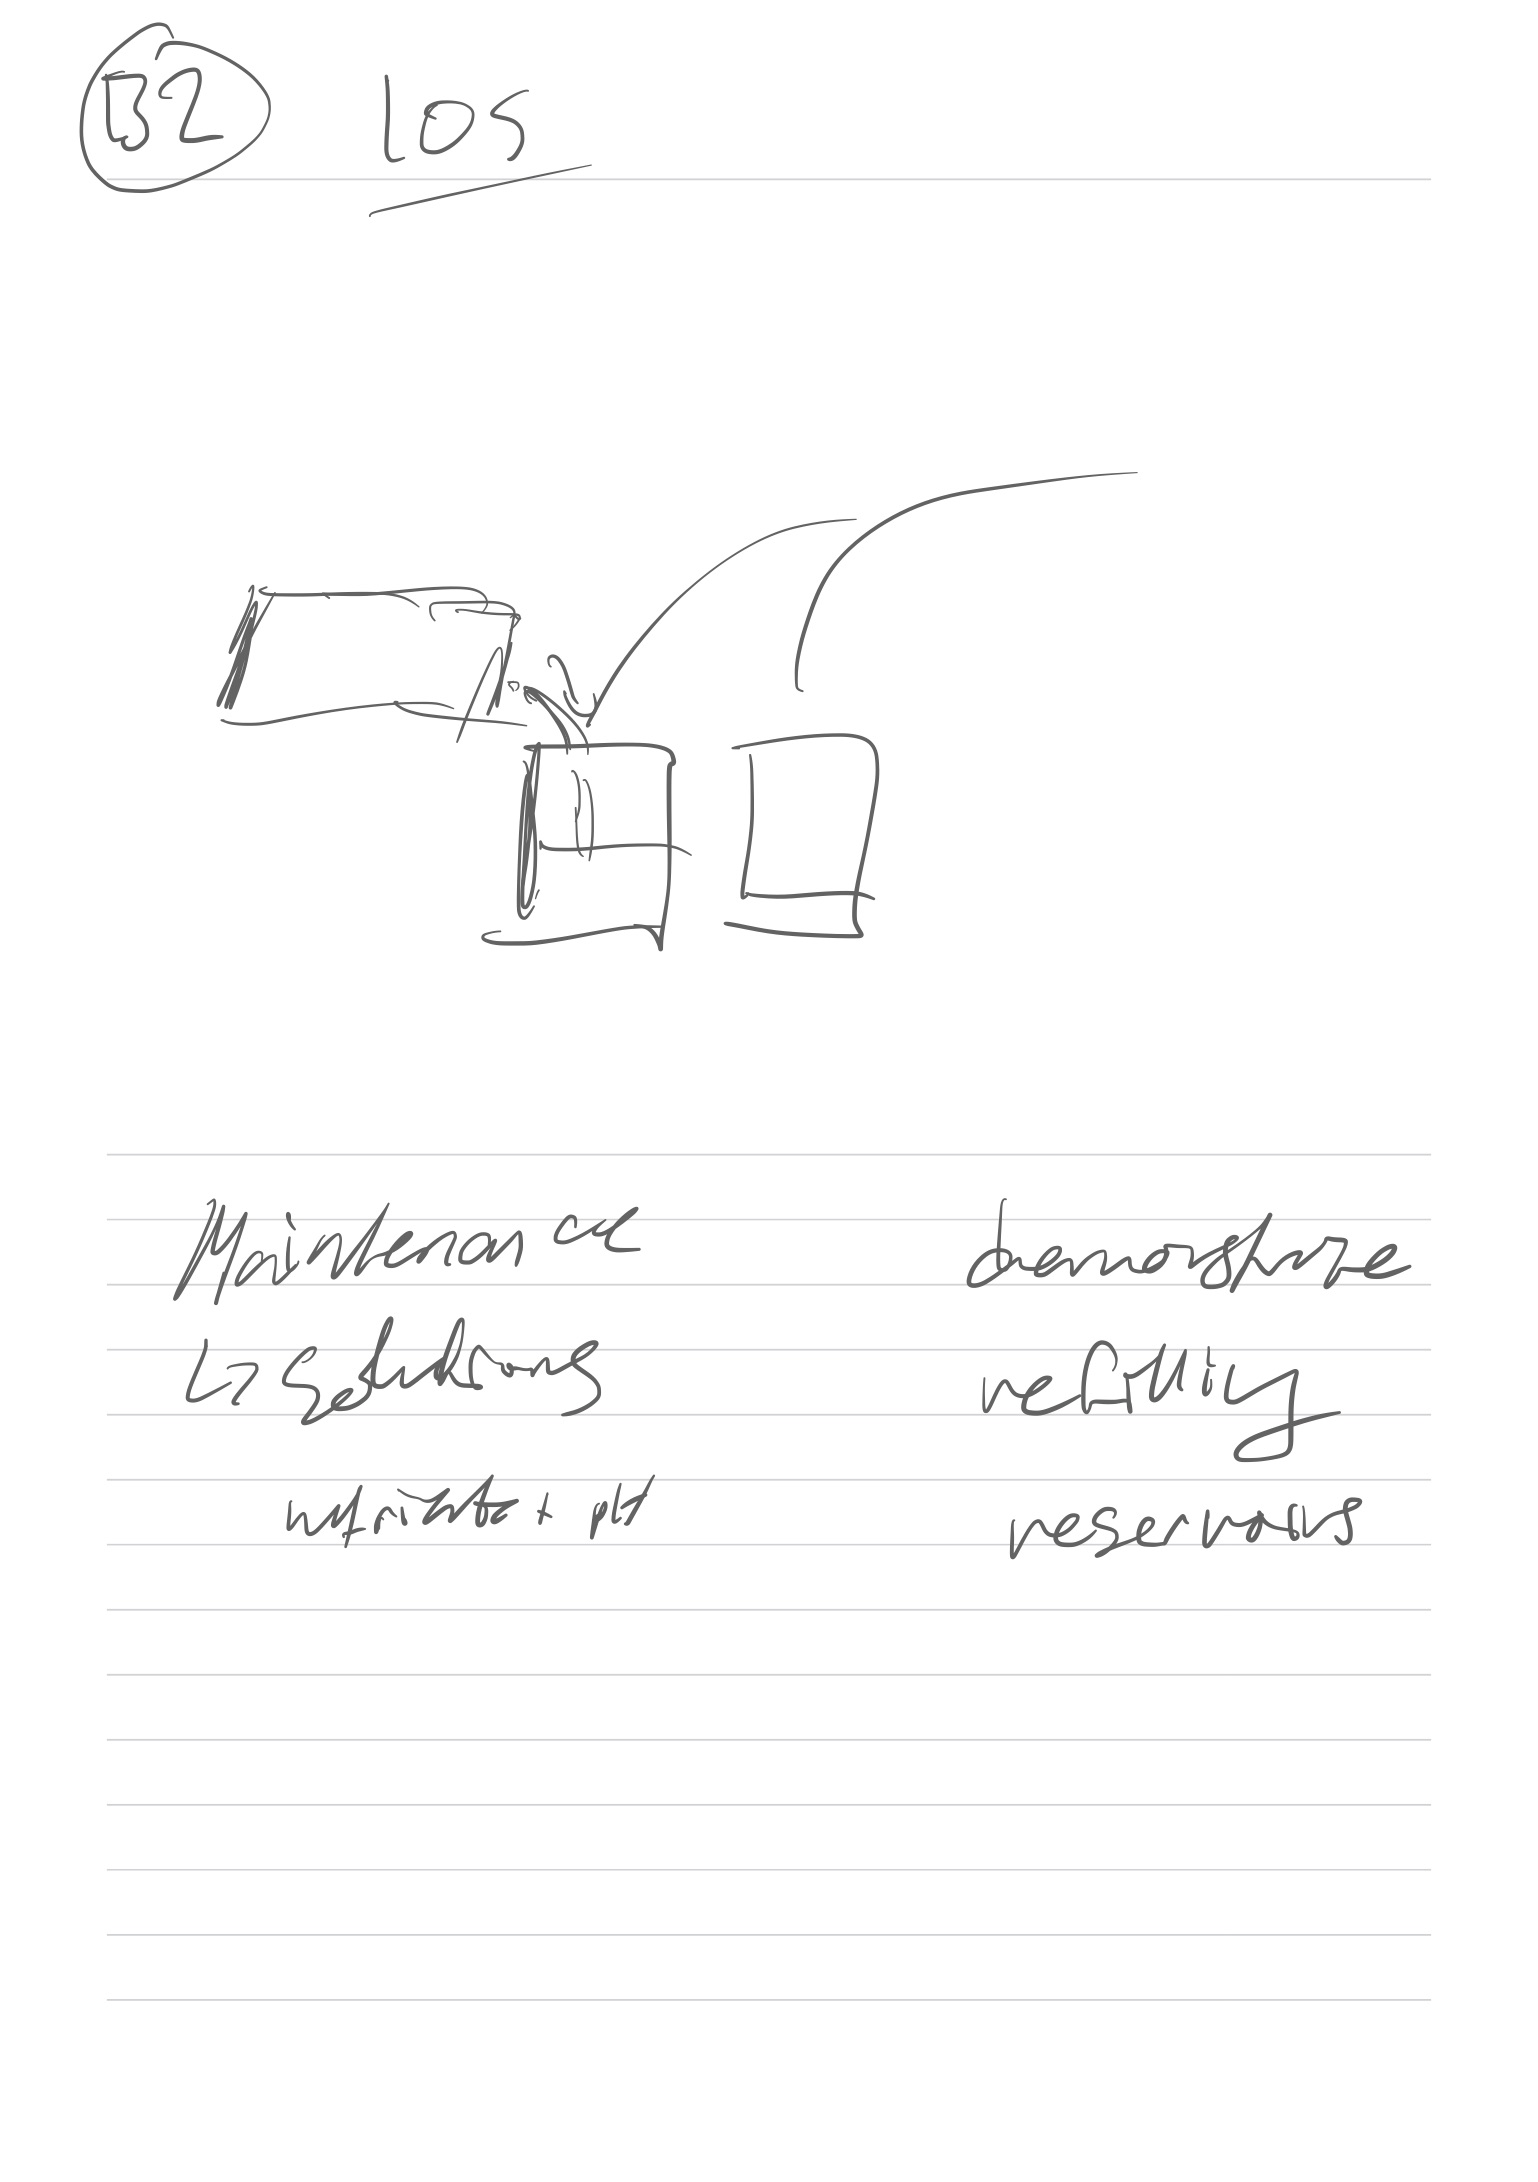 B2 10s
Maintenance
↳ Solutions
nutrients + pH
demonstrate
refilling
reservoirs